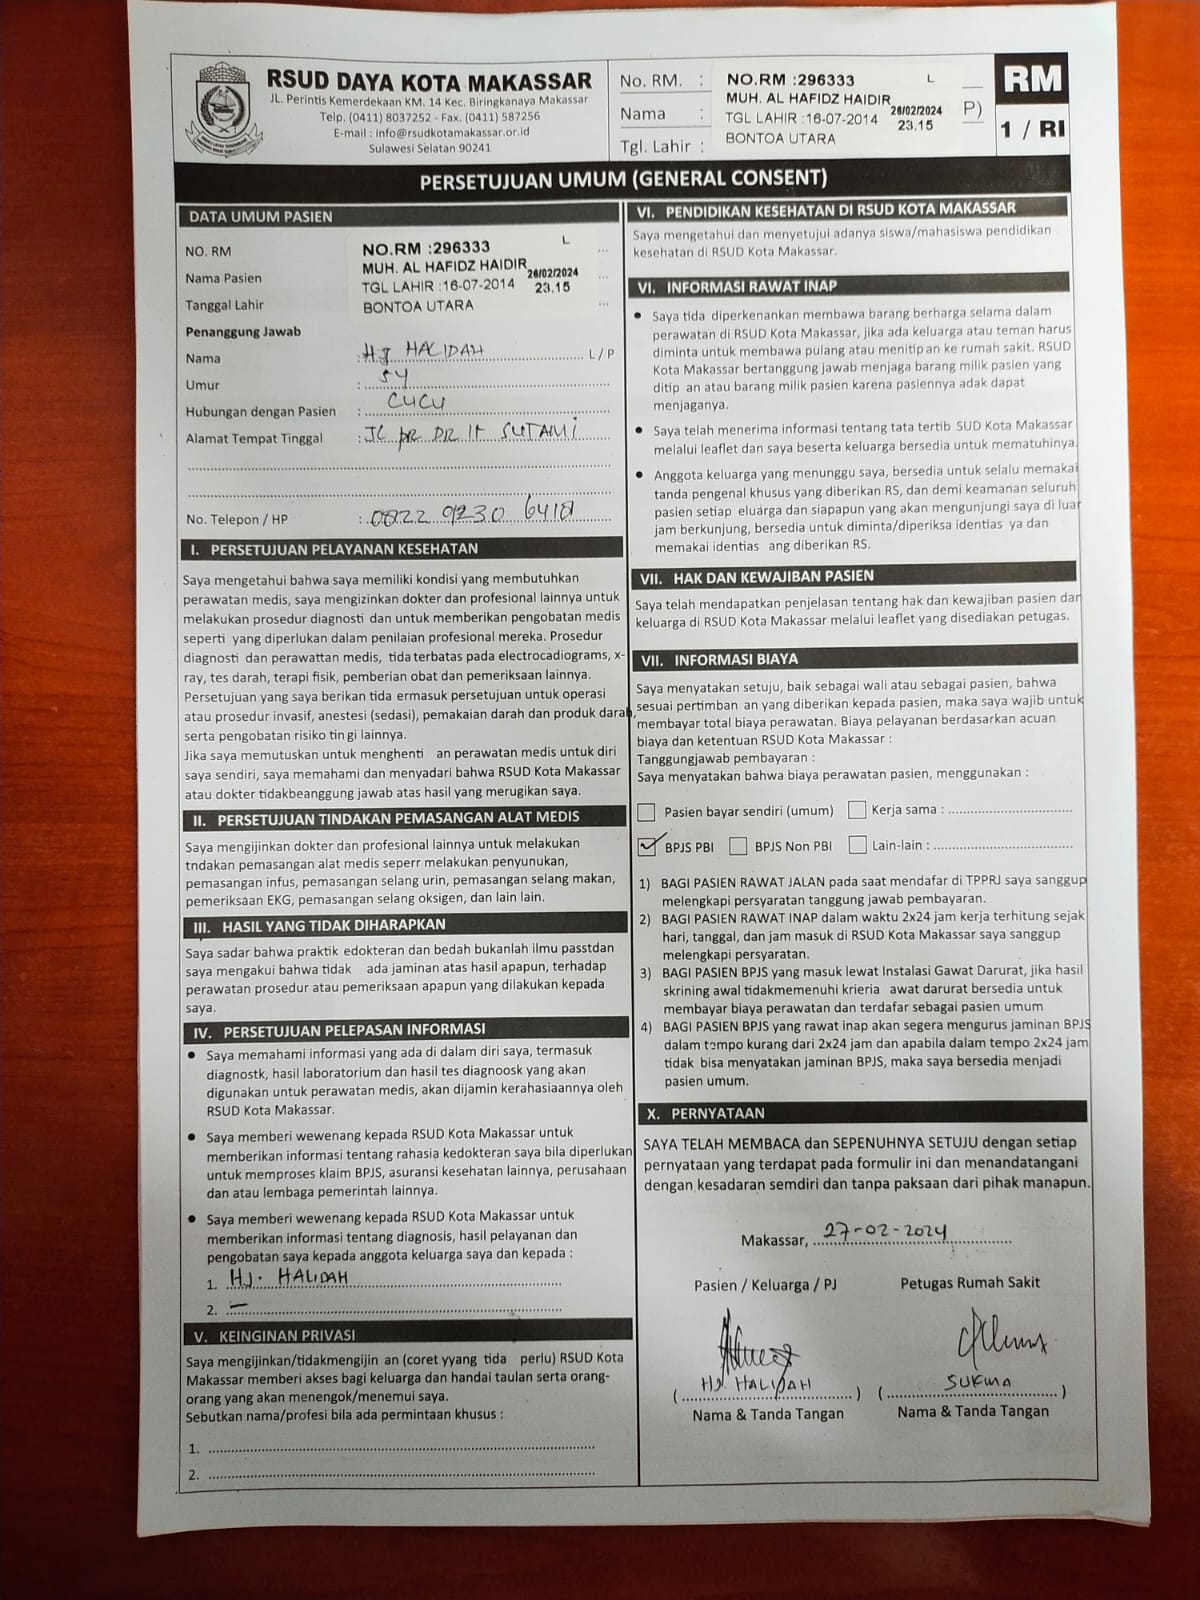 RSUD DAYA KOTA MAKASSAR
JL. Perintis Kemerdekaan KM. 14 Kec. Biringkanaya Makassar
Telp. (0411) 8037252 - Fax. (0411) 587256
E-mail : info@rsudkotamakassar.or.id
Sulawesi Selatan 90241
No. RM. :
Nama :
Tgl. Lahir :
NO.RM :296333 L
MUH. AL HAFIDZ HAIDIR
TGL LAHIR :16-07-2014
26/02/2024
23.15
BONTOA UTARA
P)
RM
1 / RI
PERSETUJUAN UMUM (GENERAL CONSENT)
DATA UMUM PASIEN
NO. RM
Nama Pasien
Tanggal Lahir
NO.RM :296333 L
MUH. AL HAFIDZ HAIDIR
TGL LAHIR :16-07-2014
26/02/2024
23.15
BONTOA UTARA
Penanggung Jawab
Nama : HJ HALIDAH L / P
Umur : 54
Hubungan dengan Pasien : CUCU
Alamat Tempat Tinggal : JL DR IR SUTAMI
No. Telepon / HP : 0822 9230 6418
I. PERSETUJUAN PELAYANAN KESEHATAN
Saya mengetahui bahwa saya memiliki kondisi yang membutuhkan
perawatan medis, saya mengizinkan dokter dan profesional lainnya untuk
melakukan prosedur diagnosti dan untuk memberikan pengobatan medis
seperti yang diperlukan dalam penilaian profesional mereka. Prosedur
diagnosti dan perawattan medis, tida terbatas pada electrocadiograms, x-
ray, tes darah, terapi fisik, pemberian obat dan pemeriksaan lainnya.
Persetujuan yang saya berikan tida ermasuk persetujuan untuk operasi
atau prosedur invasif, anestesi (sedasi), pemakaian darah dan produk darah,
serta pengobatan risiko tin gi lainnya.
Jika saya memutuskan untuk menghenti an perawatan medis untuk diri
saya sendiri, saya memahami dan menyadari bahwa RSUD Kota Makassar
atau dokter tidakbeanggung jawab atas hasil yang merugikan saya.
II. PERSETUJUAN TINDAKAN PEMASANGAN ALAT MEDIS
Saya mengijinkan dokter dan profesional lainnya untuk melakukan
tndakan pemasangan alat medis seperr melakukan penyunukan,
pemasangan infus, pemasangan selang urin, pemasangan selang makan,
pemeriksaan EKG, pemasangan selang oksigen, dan lain lain.
III. HASIL YANG TIDAK DIHARAPKAN
Saya sadar bahwa praktik edokteran dan bedah bukanlah ilmu passtdan
saya mengakui bahwa tidak ada jaminan atas hasil apapun, terhadap
perawatan prosedur atau pemeriksaan apapun yang dilakukan kepada
saya.
IV. PERSETUJUAN PELEPASAN INFORMASI
● Saya memahami informasi yang ada di dalam diri saya, termasuk
diagnostk, hasil laboratorium dan hasil tes diagnoosk yang akan
digunakan untuk perawatan medis, akan dijamin kerahasiaannya oleh
RSUD Kota Makassar.
● Saya memberi wewenang kepada RSUD Kota Makassar untuk
memberikan informasi tentang rahasia kedokteran saya bila diperlukan
untuk memproses klaim BPJS, asuransi kesehatan lainnya, perusahaan
dan atau lembaga pemerintah lainnya.
● Saya memberi wewenang kepada RSUD Kota Makassar untuk
memberikan informasi tentang diagnosis, hasil pelayanan dan
pengobatan saya kepada anggota keluarga saya dan kepada :
1. HJ. HALIDAH
2. –
V. KEINGINAN PRIVASI
Saya mengijinkan/tidakmengijin an (coret yyang tida perlu) RSUD Kota
Makassar memberi akses bagi keluarga dan handai taulan serta orang-
orang yang akan menengok/menemui saya.
Sebutkan nama/profesi bila ada permintaan khusus :
1.
2.
VI. PENDIDIKAN KESEHATAN DI RSUD KOTA MAKASSAR
Saya mengetahui dan menyetujui adanya siswa/mahasiswa pendidikan
kesehatan di RSUD Kota Makassar.
VI. INFORMASI RAWAT INAP
● Saya tida diperkenankan membawa barang berharga selama dalam
perawatan di RSUD Kota Makassar, jika ada keluarga atau teman harus
diminta untuk membawa pulang atau menitip an ke rumah sakit. RSUD
Kota Makassar bertanggung jawab menjaga barang milik pasien yang
ditip an atau barang milik pasien karena pasiennya adak dapat
menjaganya.
● Saya telah menerima informasi tentang tata tertib SUD Kota Makassar
melalui leaflet dan saya beserta keluarga bersedia untuk mematuhinya.
● Anggota keluarga yang menunggu saya, bersedia untuk selalu memakai
tanda pengenal khusus yang diberikan RS, dan demi keamanan seluruh
pasien setiap eluárga dan siapapun yang akan mengunjungi saya di luar
jam berkunjung, bersedia untuk diminta/diperiksa identias ya dan
memakai identias ang diberikan RS.
VII. HAK DAN KEWAJIBAN PASIEN
Saya telah mendapatkan penjelasan tentang hak dan kewajiban pasien dan
keluarga di RSUD Kota Makassar melalui leaflet yang disediakan petugas.
VII. INFORMASI BIAYA
Saya menyatakan setuju, baik sebagai wali atau sebagai pasien, bahwa
sesuai pertimban an yang diberikan kepada pasien, maka saya wajib untuk
membayar total biaya perawatan. Biaya pelayanan berdasarkan acuan
biaya dan ketentuan RSUD Kota Makassar :
Tanggungjawab pembayaran :
Saya menyatakan bahwa biaya perawatan pasien, menggunakan :
Pasien bayar sendiri (umum) Kerja sama :
✓ BPJS PBI BPJS Non PBI Lain-lain :
1) BAGI PASIEN RAWAT JALAN pada saat mendafar di TPPRJ saya sanggup
melengkapi persyaratan tanggung jawab pembayaran.
2) BAGI PASIEN RAWAT INAP dalam waktu 2x24 jam kerja terhitung sejak
hari, tanggal, dan jam masuk di RSUD Kota Makassar saya sanggup
melengkapi persyaratan.
3) BAGI PASIEN BPJS yang masuk lewat Instalasi Gawat Darurat, jika hasil
skrining awal tidakmemenuhi krieria awat darurat bersedia untuk
membayar biaya perawatan dan terdafar sebagai pasien umum
4) BAGI PASIEN BPJS yang rawat inap akan segera mengurus jaminan BPJS
dalam tempo kurang dari 2x24 jam dan apabila dalam tempo 2x24 jam
tidak bisa menyatakan jaminan BPJS, maka saya bersedia menjadi
pasien umum.
X. PERNYATAAN
SAYA TELAH MEMBACA dan SEPENUHNYA SETUJU dengan setiap
pernyataan yang terdapat pada formulir ini dan menandatangani
dengan kesadaran semdiri dan tanpa paksaan dari pihak manapun.
Makassar, 27-02-2024
Pasien / Keluarga / PJ Petugas Rumah Sakit
( HJ. HALIDAH ) ( SUKMA )
Nama & Tanda Tangan Nama & Tanda Tangan